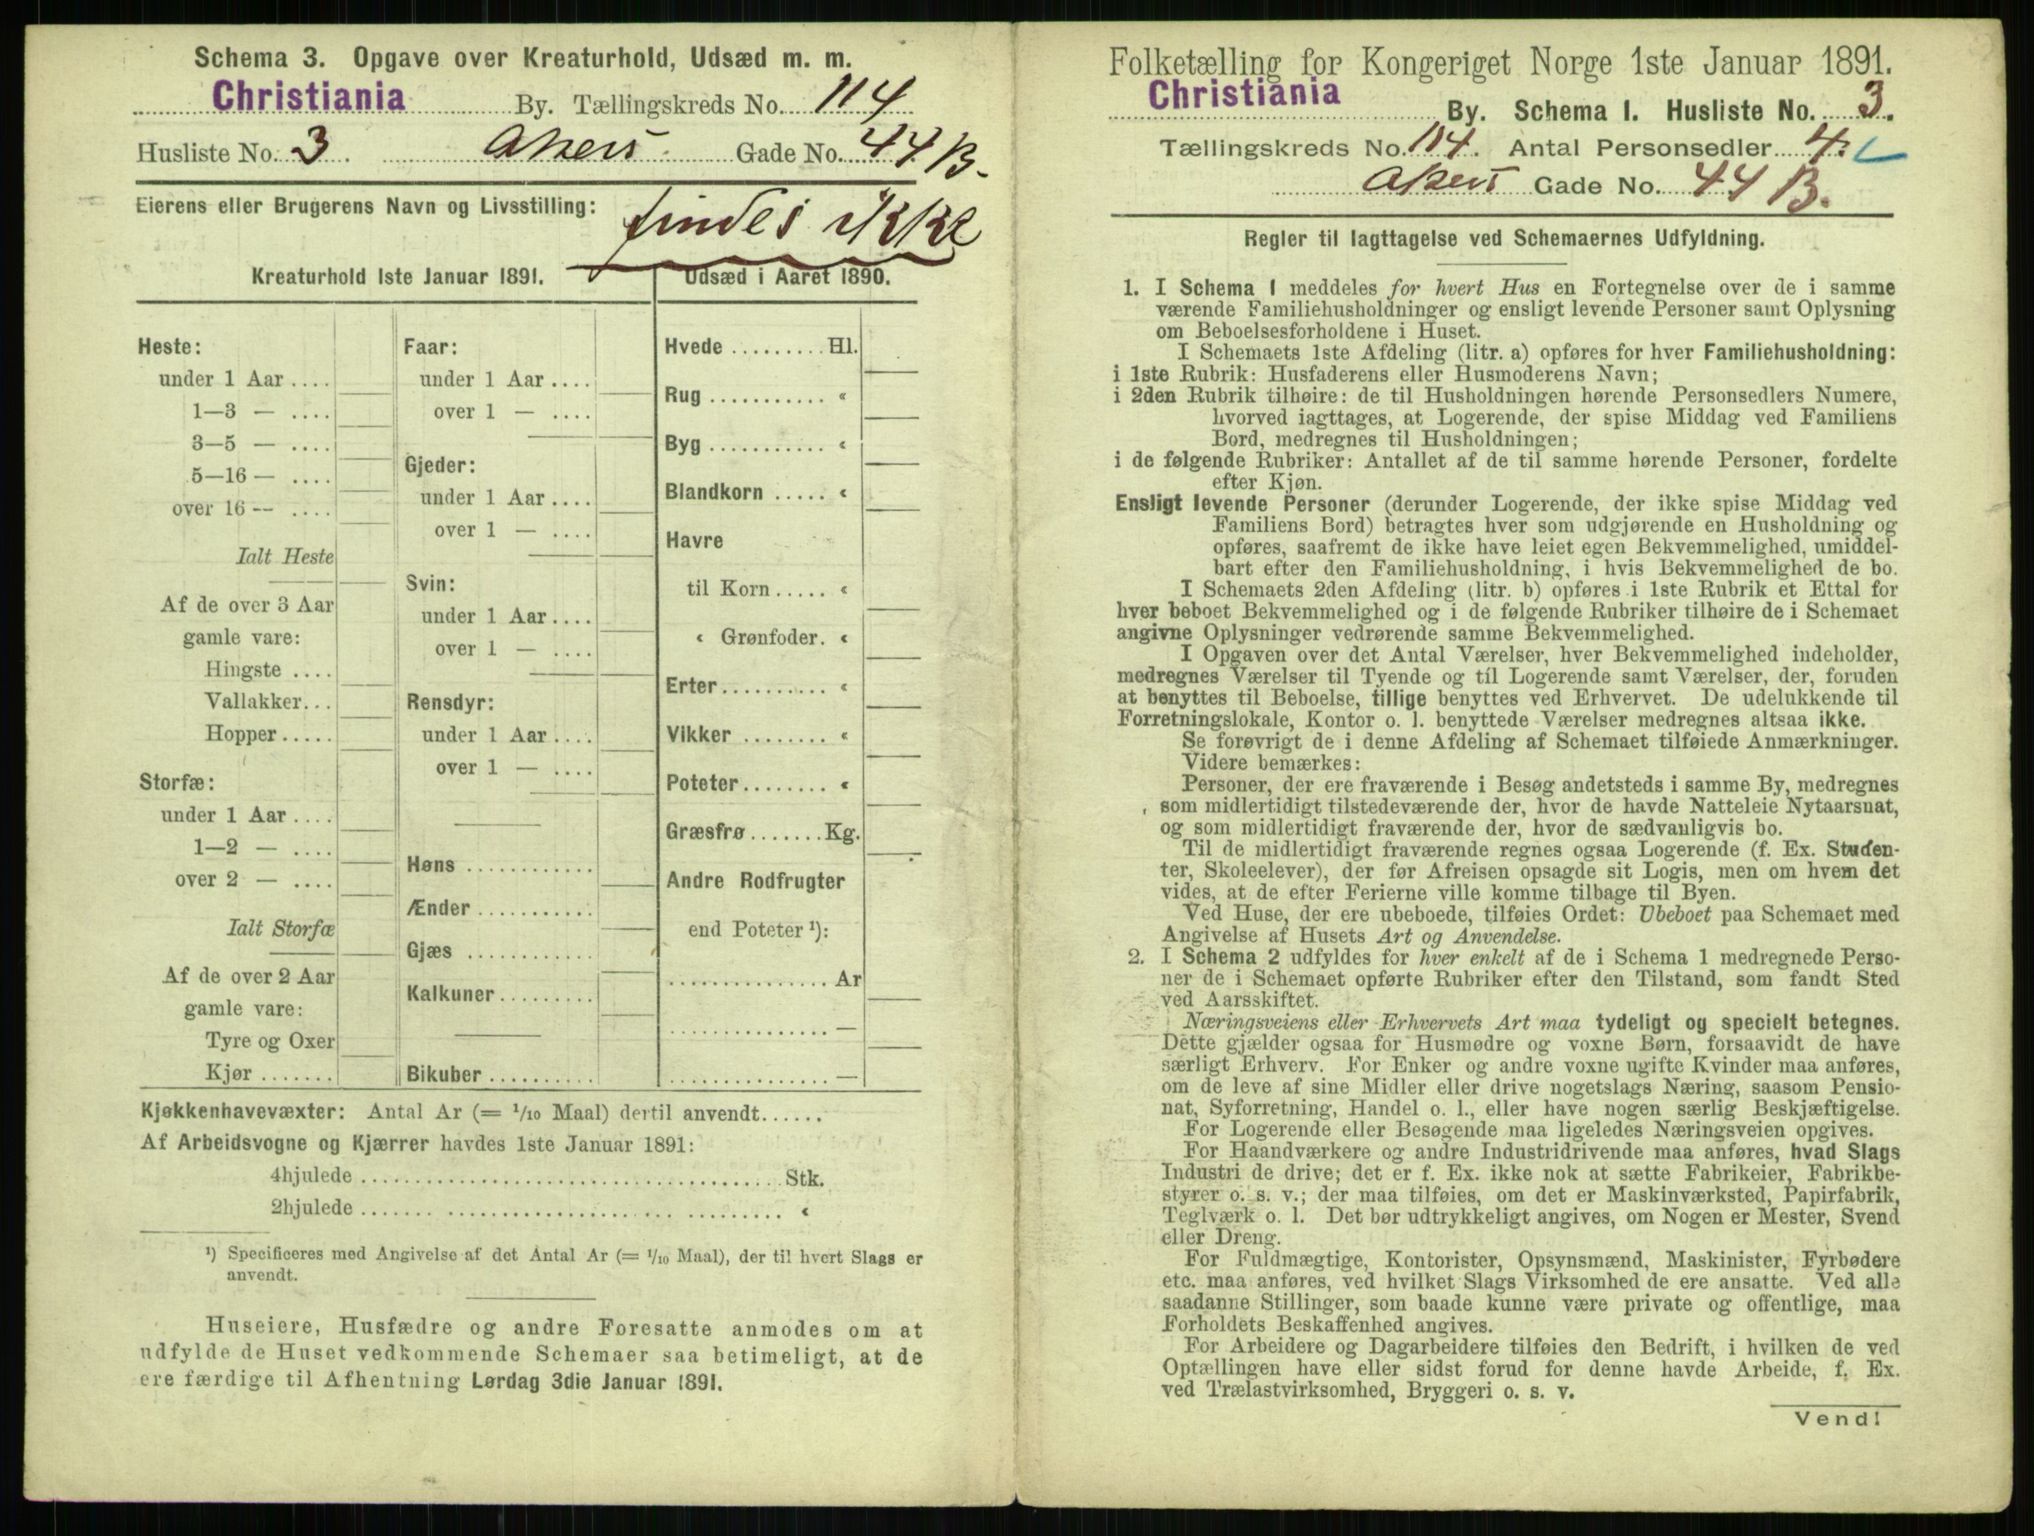 Schema 3. Opgave over Kreaturhold, Udsæd m. m.
Christiania By. Tællingskreds No. 114
Husliste No. 3. Akers Gade No. 44 B.
Eierens eller Brugerens Navn og Livsstilling: findes ikke
Kreaturhold 1ste Januar 1891.
Heste:
under 1 Aar ....
1—3 — ....
3—5 — ....
5—16 — ....
over 16 -- ....
Ialt Heste
Af de over 3 Aar
gamle vare:
Hingste ....
Vallakker...
Hopper.....
Storfæ:
under 1 Aar ....
1—2 — ....
over 2 — ....
Ialt Storfæ
Af de over 2 Aar
gamle vare:
Tyre og Oxer
Kjør .......
Faar:
under 1 Aar ....
over 1 — ....
Gjeder:
under 1 Aar ....
over 1 — ....
Svin:
under 1 Aar ....
over 1 — ....
Rensdyr:
under 1 Aar ....
over 1 — ....
Høns ...........
Ænder ...........
Gjæs ...........
Kalkuner.........
Bikuber ..........
Udsæd i Aaret 1890.
Hvede ......... Hl.
Rug ........... «
Byg ........... «
Blandkorn ..... «
Havre
til Korn ..... «
« Grønfoder. «
Erter.......... «
Vikker ........ «
Poteter........ «
Græsfrø ....... Kg.
Andre Rodfrugter
end Poteter ¹):
............... Ar
............... —
............... —
Kjøkkenhavevæxter: Antal Ar (= 1/10 Maal) dertil anvendt......
Af Arbeidsvogne og Kjærrer havdes 1ste Januar 1891:
4hjulede ..................................... Stk.
2hjulede ..................................... «
¹) Specificeres med Angivelse af det Antal Ar (= 1/10 Maal), der til hvert Slags er
anvendt.
Huseiere, Husfædre og andre Foresatte anmodes om at
udfylde de Huset vedkommende Schemaer saa betimeligt, at de
ere færdige til Afhentning Lørdag 3die Januar 1891.
Folketælling for Kongeriget Norge 1ste Januar 1891.
Christiania By. Schema I. Husliste No. 3.
Tællingskreds No. 114. Antal Personsedler 4.
Akers Gade No. 44 B.
Regler til Iagttagelse ved Schemaernes Udfyldning.
1. I Schema 1 meddeles for hvert Hus en Fortegnelse over de i samme
værende Familiehusholdninger og ensligt levende Personer samt Oplysning
om Beboelsesforholdene i Huset.
I Schemaets 1ste Afdeling (litr. a) opføres for hver Familiehusholdning:
i 1ste Rubrik: Husfaderens eller Husmoderens Navn;
i 2den Rubrik tilhøire: de til Husholdningen hørende Personsedlers Numere,
hvorved iagttages, at Logerende, der spise Middag ved Familiens
Bord, medregnes til Husholdningen;
i de følgende Rubriker: Antallet af de til samme hørende Personer, fordelte
efter Kjøn.
Ensligt levende Personer (derunder Logerende, der ikke spise Middag ved
Familiens Bord) betragtes hver som udgjørende en Husholdning og
opføres, saafremt de ikke have leiet egen Bekvemmelighed, umiddel-
bart efter den Familiehusholdning, i hvis Bekvemmelighed de bo.
I Schemaets 2den Afdeling (litr. b) opføres i 1ste Rubrik et Ettal for
hver beboet Bekvemmelighed og i de følgende Rubriker tilhøire de i Schemaet
angivne Oplysninger vedrørende samme Bekvemmelighed.
I Opgaven over det Antal Værelser, hver Bekvemmelighed indeholder,
medregnes Værelser til Tyende og til Logerende samt Værelser, der, foruden
at benyttes til Beboelse, tillige benyttes ved Erhvervet. De udelukkende til
Forretningslokale, Kontor o. l. benyttede Værelser medregnes altsaa ikke.
Se forøvrigt de i denne Afdeling af Schemaet tilføiede Anmærkninger.
Videre bemærkes:
Personer, der ere fraværende i Besøg andetsteds i samme By, medregnes
som midlertidigt tilstedeværende der, hvor de havde Natteleie Nytaarsnat,
og som midlertidigt fraværende der, hvor de sædvanligvis bo.
Til de midlertidigt fraværende regnes ogsaa Logerende (f. Ex. Studen-
ter, Skoleelever), der før Afreisen opsagde sit Logis, men om hvem det
vides, at de efter Ferierne ville komme tilbage til Byen.
Ved Huse, der ere ubeboede, tilføies Ordet: Ubeboet paa Schemaet med
Angivelse af Husets Art og Anvendelse.
2. I Schema 2 udfyldes for hver enkelt af de i Schema 1 medregnede Perso-
ner de i Schemaet opførte Rubriker efter den Tilstand, som fandt Sted
ved Aarsskiftet.
Næringsveiens eller Erhvervets Art maa tydeligt og specielt betegnes.
Dette gjælder ogsaa for Husmødre og voxne Børn, forsaavidt de have
særligt Erhverv. For Enker og andre voxne ugifte Kvinder maa anføres,
om de leve af sine Midler eller drive nogetslags Næring, saasom Pensio-
nat, Syforretning, Handel o. l., eller have nogen særlig Beskjæftigelse.
For Logerende eller Besøgende maa ligeledes Næringsveien opgives.
For Haandværkere og andre Industridrivende maa anføres, hvad Slags
Industri de drive; det er f. Ex. ikke nok at sætte Fabrikeier, Fabrikbe-
styrer o. s. v.; der maa tilføies, om det er Maskinværksted, Papirfabrik,
Teglværk o. l. Det bør udtrykkeligt angives, om Nogen er Mester, Svend
eller Dreng.
For Fuldmægtige, Kontorister, Opsynsmænd, Maskinister, Fyrbødere
etc. maa anføres, ved hvilket Slags Virksomhed de ere ansatte. Ved alle
saadanne Stillinger, som baade kunne være private og offentlige, maa
Forholdets Beskaffenhed angives.
For Arbeidere og Dagarbeidere tilføies den Bedrift, i hvilken de ved
Optællingen have eller sidst forud for denne havde Arbeide, f. Ex.
ved Trælastvirksomhed, Bryggeri o. s. v.
Vend!